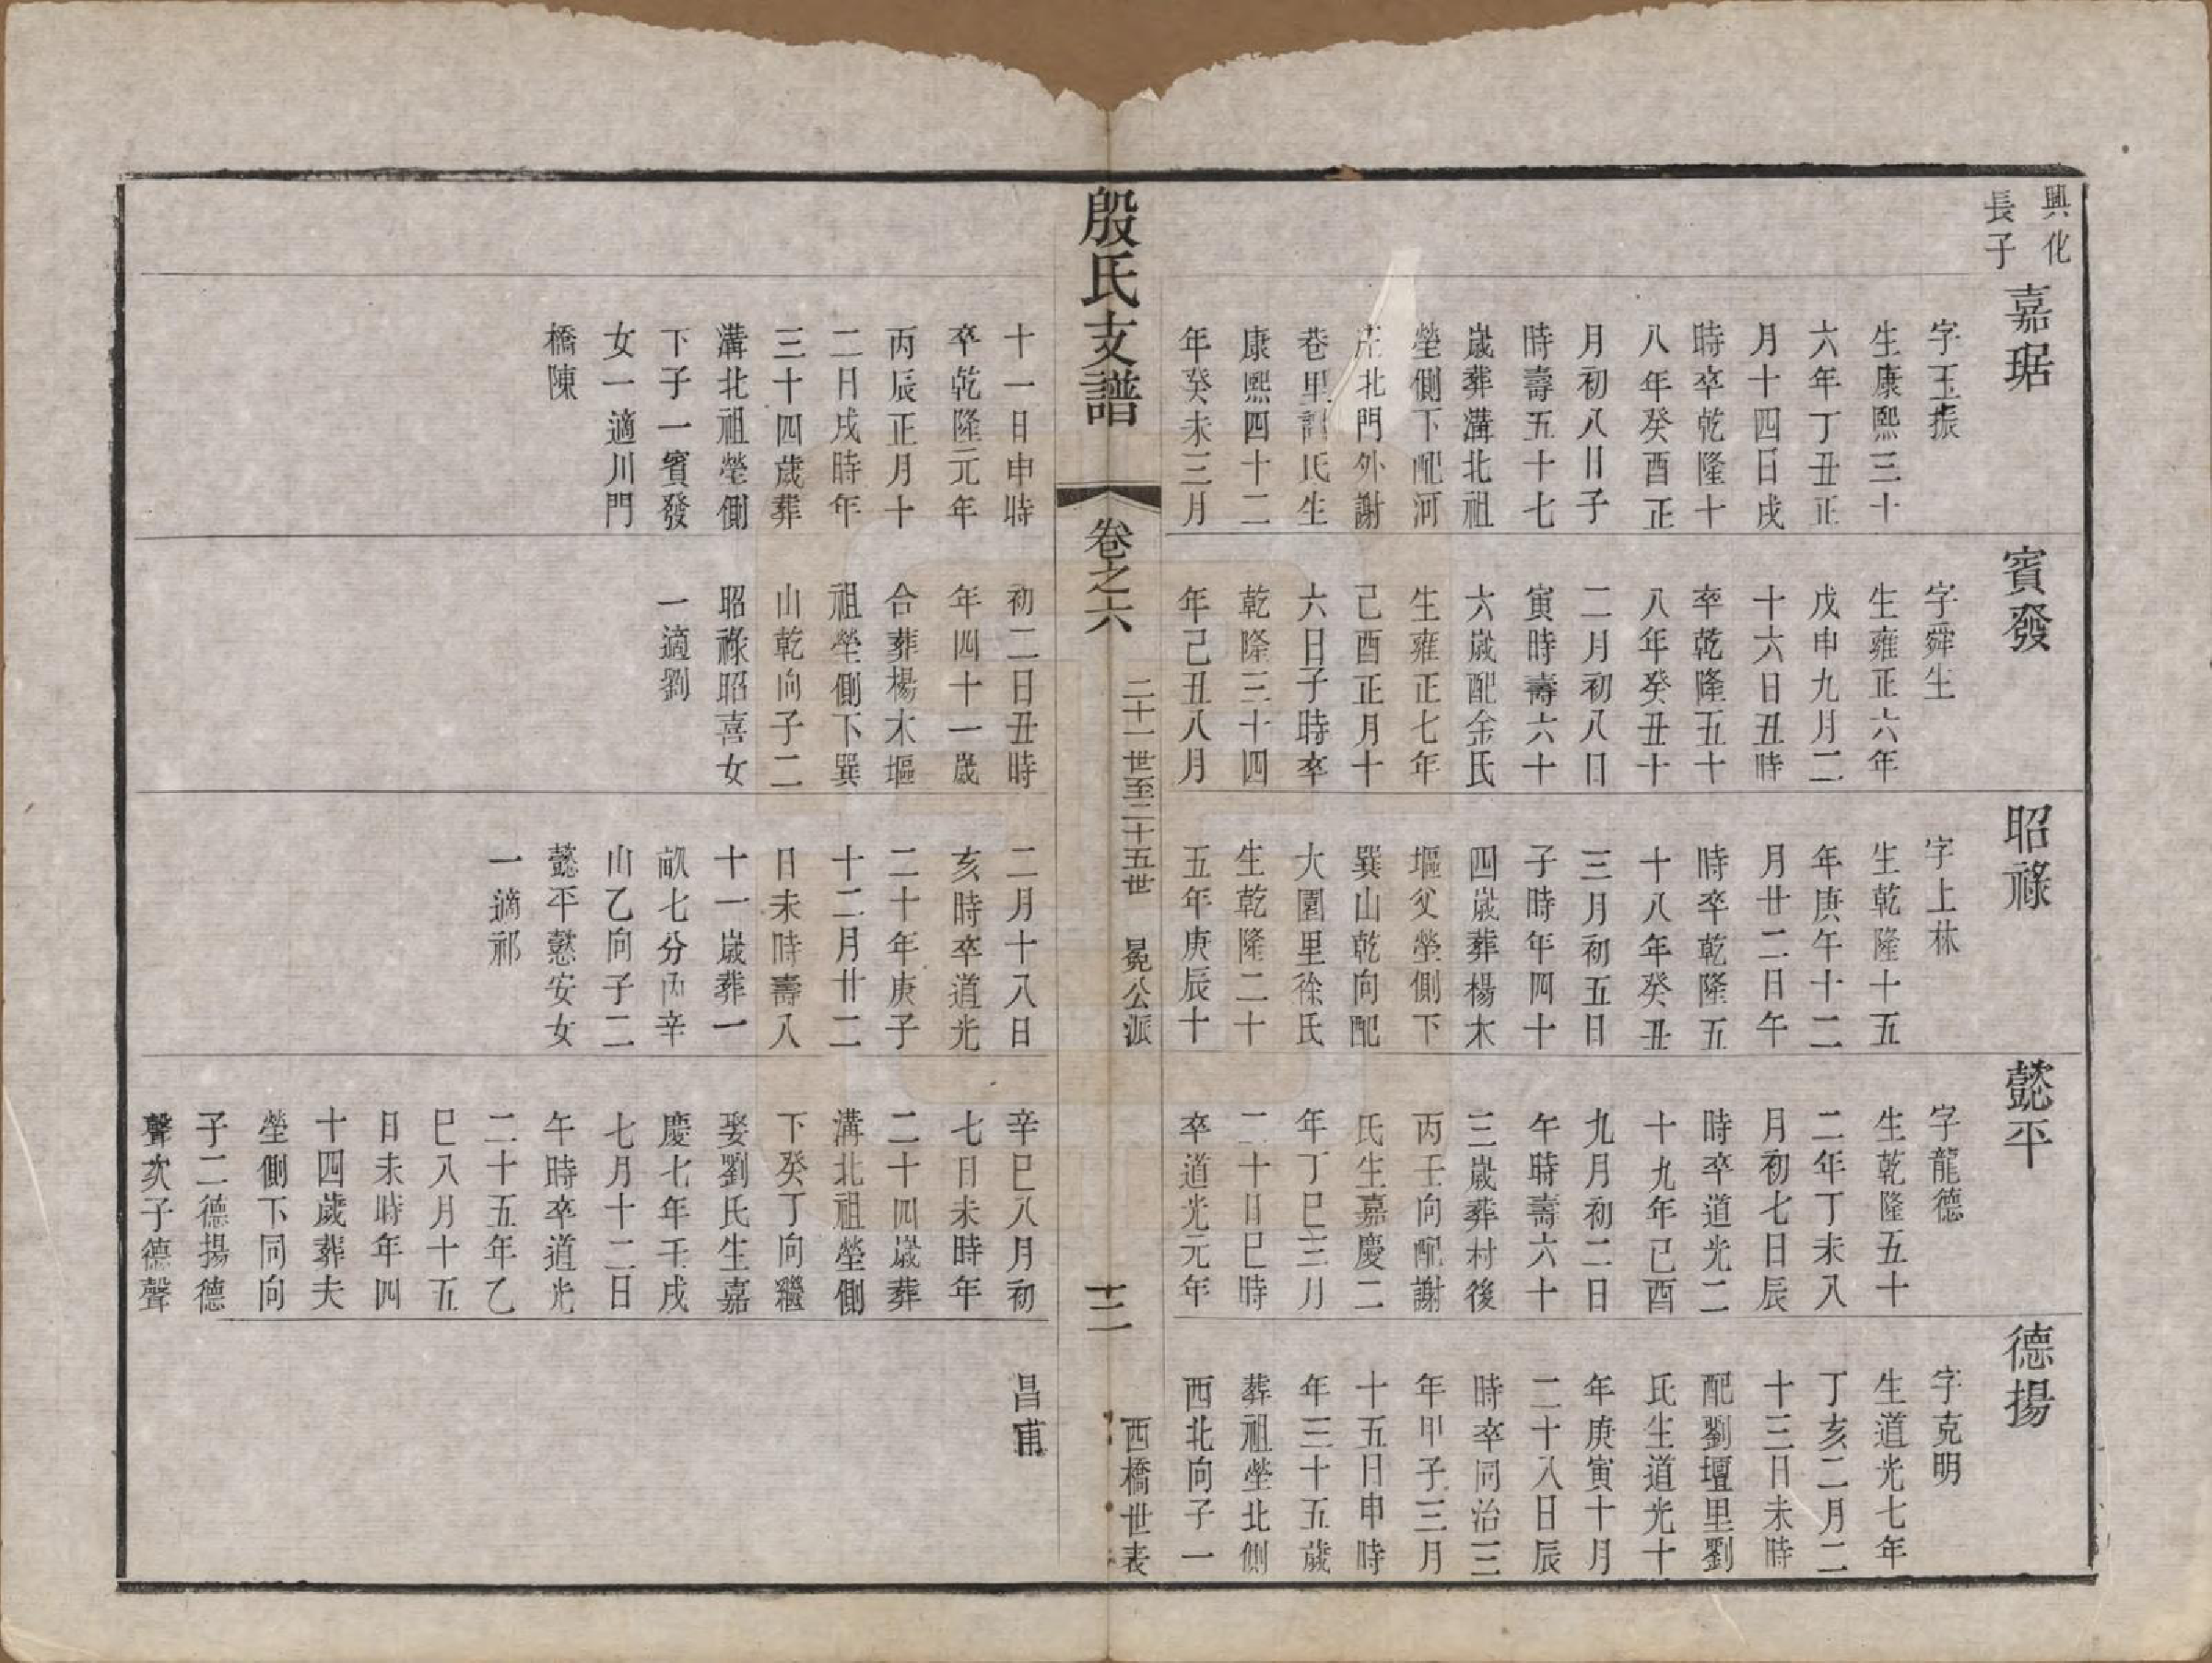 興化
長子
嘉琚
字玉振
生康熙三十
六年丁丑正
月十四日戌
時卒乾隆十
八年癸酉正
月初八日子
時壽五十七
歲葬溝北祖
塋側下配河
北門外謝
巷里 氏生
康熙四十二
年癸未三月
十一日申時
卒乾隆元年
丙辰正月十
二日戌時年
三十四歲葬
溝北祖塋側
下子一賓發
女一適川門
橋陳
賓發
字舜生
生雍正六年
戊申九月二
十六日丑時
卒乾隆五十
八年癸丑十
二月初八日
寅時壽六十
六歲配金氏
生雍正七年
己酉正月十
六日子時卒
乾隆三十四
年己丑八月
初二日丑時
年四十一歲
合葬楊木堰
祖塋側下巽
山乾向子二
昭祿昭喜女
一適劉
昭祿
字上林
生乾隆十五
年庚午十二
月廿二日午
時卒乾隆五
十八年癸丑
三月初五日
子時年四十
四歲葬楊木
堰父塋側下
巽山乾向配
大園里徐氏
生乾隆二十
五年庚辰十
二月十八日
亥時卒道光
二十年庚子
十二月廿二
日未時壽八
十一歲葬一
畝七分內辛
山乙向子二
懿平懿安女
一適祁
懿平
字龍德
生乾隆五十
二年丁未八
月初七日辰
時卒道光二
十九年己酉
九月初二日
午時壽六十
三歲葬村後
丙壬向配謝
氏生嘉慶二
年丁巳三月
二十日巳時
卒道光元年
辛巳八月初
七日未時年
二十四歲葬
溝北祖塋側
下癸丁向繼
娶劉氏生嘉
慶七年壬戌
七月十二日
午時卒道光
二十五年乙
巳八月十五
日未時年四
十四歲葬夫
塋側下同向
子二德揚德
聲次子德聲
德揚
字克明
生道光七年
丁亥二月二
十三日未時
配劉壇里劉
氏生道光十
年庚寅十月
二十八日辰
時卒同治三
年甲子三月
十五日申時
年三十五歲
葬祖塋北側
西北向子一
昌甫
殷氏支譜
卷之六
二十一世至二十五世 冕公派
十二
西橋世表